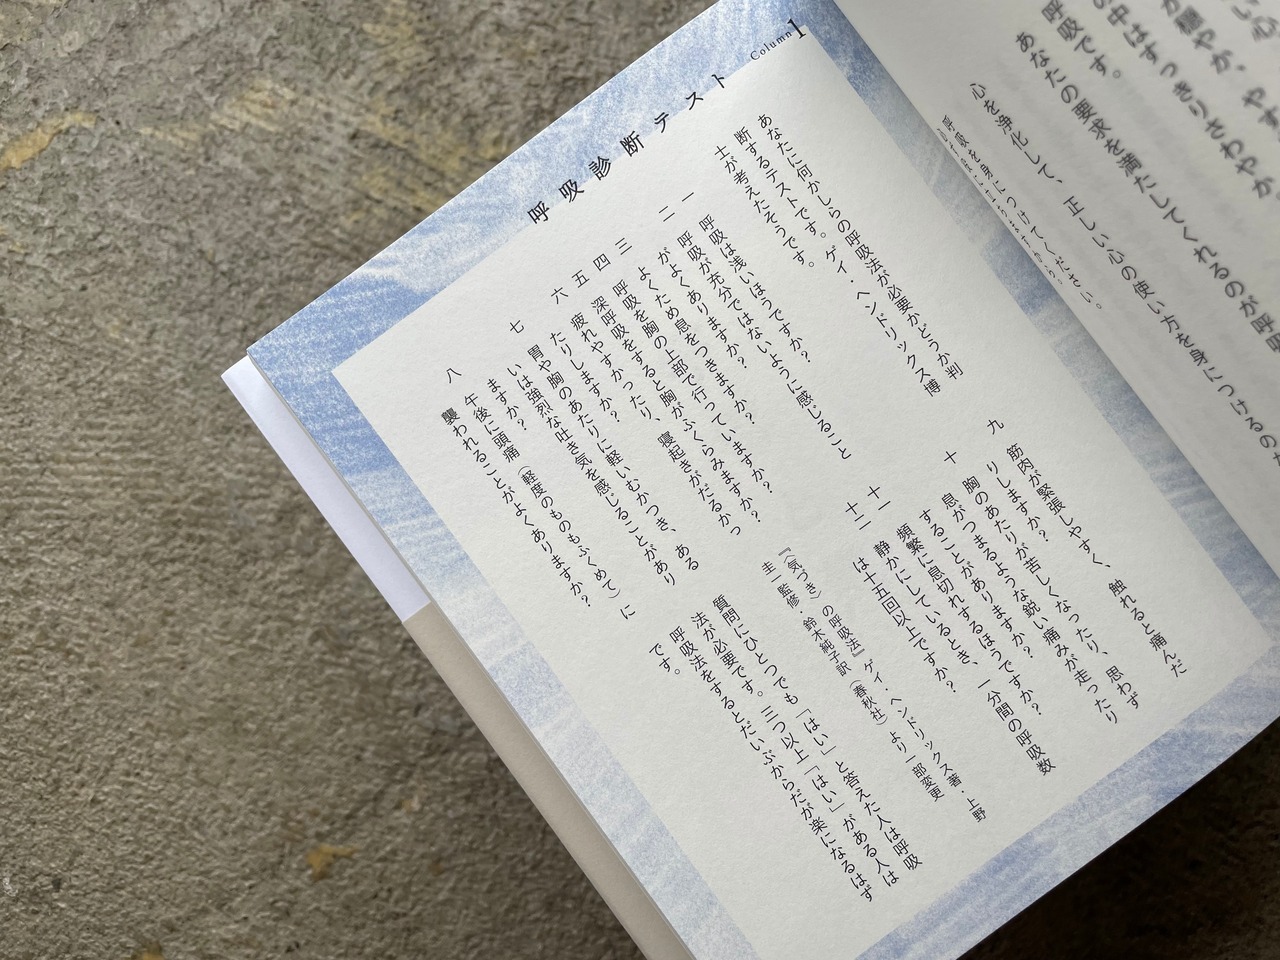 い心
が穏やか、やす
の中はすっきりさわやか
呼吸です。
あなたの要求を満たしてくれるのが呼吸
心を浄化して、正しい心の使い方を身につけるのた
呼吸を身につけてください。
Column 1
呼吸診断テスト
あなたに何かしらの呼吸法が必要かどうか判
断するテストです。ゲイ・ヘンドリックス博
士が考えたそうです。
一 呼吸は浅いほうですか?
二 呼吸が充分ではないように感じること
がよくありますか?
三 よくため息をつきますか?
四 呼吸を胸の上部で行っていますか?
五 深呼吸をすると胸がふくらみますか?
六 疲れやすかったり、寝起きがだるかっ
たりしますか?
七 胃や胸のあたりに軽いむかつき、ある
いは強烈な吐き気を感じることがあり
ますか?
八 午後に頭痛(軽度のものもふくめて)に
襲われることがよくありますか?
九 筋肉が緊張しやすく、触れると痛んだ
りしますか?
十 胸のあたりが苦しくなったり、思わず
息がつまるような鋭い痛みが走ったり
することがありますか?
十一 頻繁に息切れするほうですか?
十二 静かにしているとき、一分間の呼吸数
は十五回以上ですか?
『〈気づき〉の呼吸法』ゲイ・ヘンドリックス著・上野
圭一監修・鈴木純子訳(春秋社)より一部変更
質問にひとつでも「はい」と答えた人は呼吸
法が必要です。三つ以上「はい」がある人は
呼吸法をするとだいぶからだが楽になるはず
です。